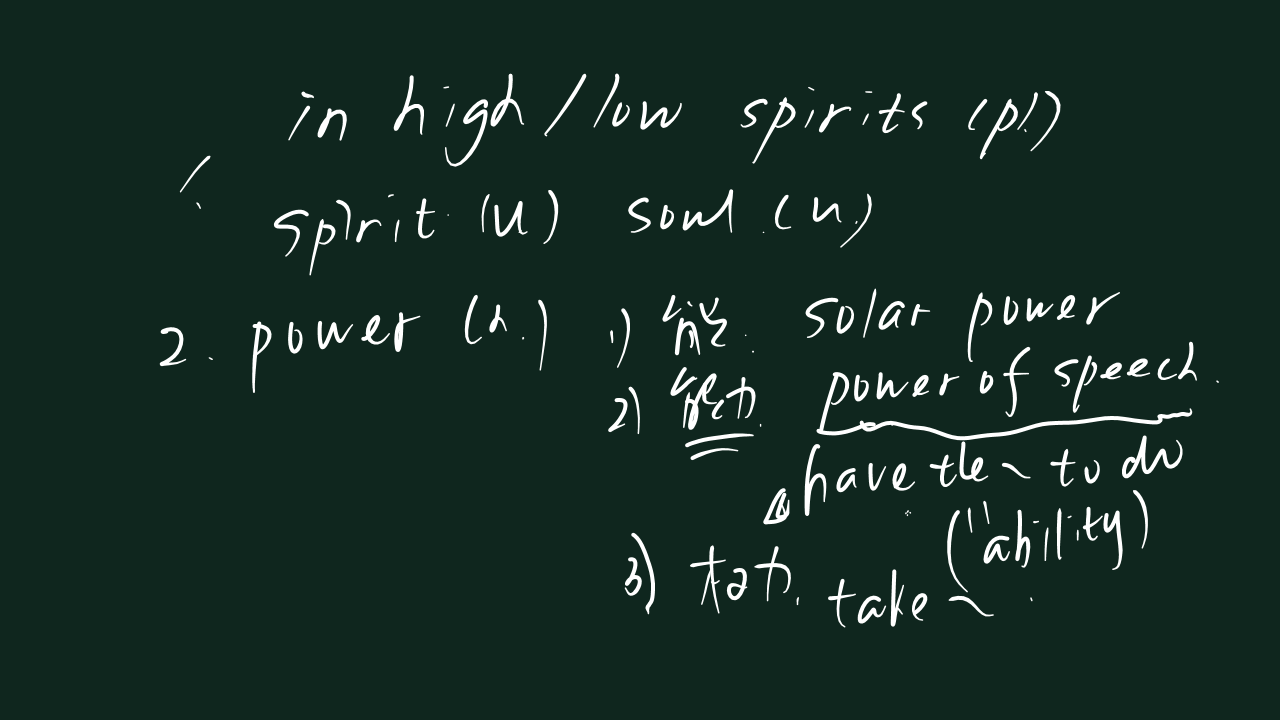 in high/low spirits (pl.)
spirit (u) soul (n.)
2. power (n.) 1) 能. solar power
2) 能力. power of speech.
have the ~ to do
("ability)
3) 权力. take ~